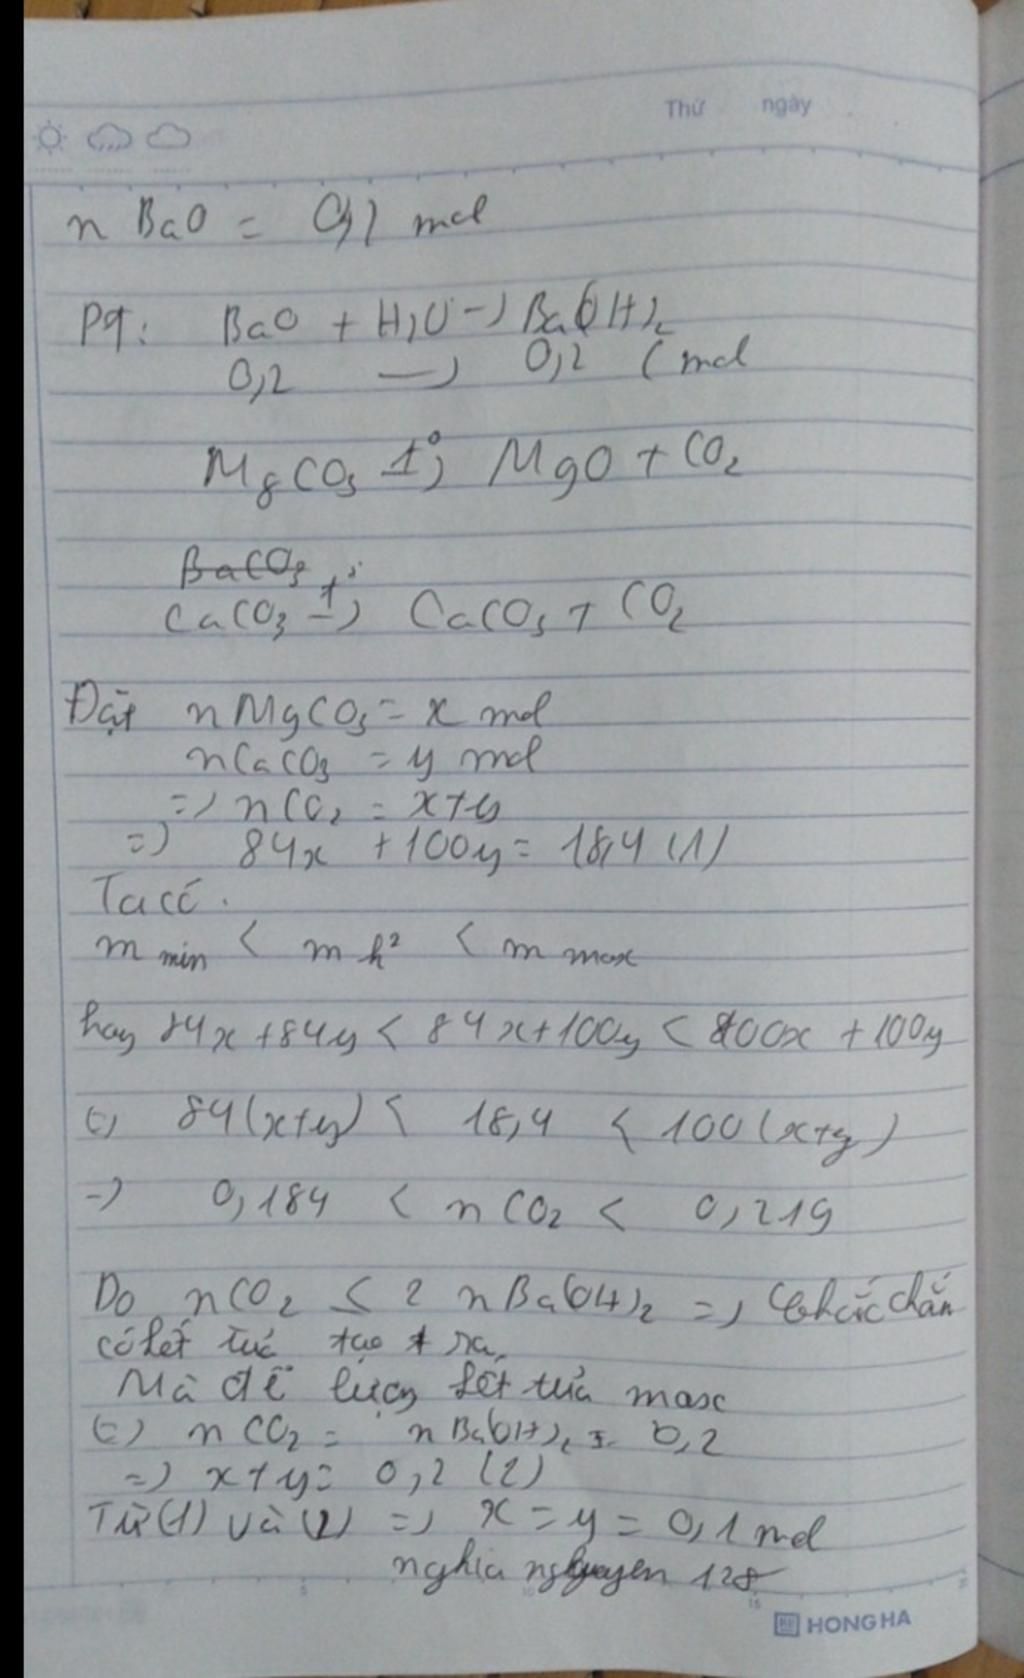 Thứ ngày
n BaO = 0,2 mol
PT: BaO + H2O -> Ba(OH)2
0,2 -> 0,2 (mol
MgCO3 t°-> MgO + CO2
BaCO3
CaCO3 t°-> CaCO3 + CO2
Đặt nMgCO3 = x mol
nCaCO3 = y mol
=> nCO2 = x+y
=> 84x + 100y = 18,4 (1)
Ta có.
m min < m h² < m max
hay 84x + 84y < 84x + 100y < 100x + 100y
(=) 84(x+y) < 18,4 < 100(x+y)
-> 0,184 < nCO2 < 0,219
Do nCO2 ≤ 2 nBa(OH)2 => chắc chắn
có kết tủa tạo ra.
Mà để lượng kết tủa max
(=) nCO2 = nBa(OH)2 = 0,2
=> x+y = 0,2 (2)
Từ (1) và (2) => x = y = 0,1 mol
nghia nguyen 128
HONG HA